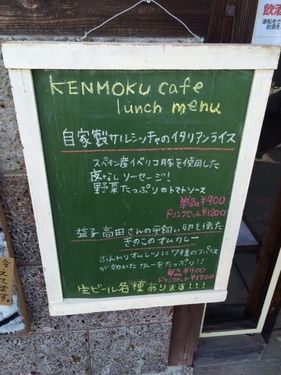 KENMOKU cafe
lunch menu
自家製サルシッチャのイタリアンライス
スペイン産イベリコ豚を使用した
皮なしソーセージ!
野菜たっぷりのトマトソース
単品¥900
ドリンクセット¥1200
益子 高田さんの平飼い卵を使った
きのこのオムカレー
ふんわりオムレツに7種のスパイス
が効いたカレーをたっぷり!!
単品¥900
ドリンクセット¥1200
生ビール各種あります!!!
飲酒
冷えてます。